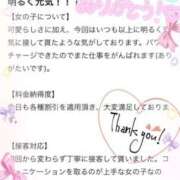 明るく元気!!
ありがとう!
【女の子について】
可愛らしさに加え、今回はいつも以上に明るく
気に接して貰ったような気がしております。パワ
チャージできましたまた仕事をがんばれます(あ
りがたいです)。
【料金納得度】
今日も各種割引を適用頂き、大変満足しており
Thank you!
【接客対応】
回から変わらず丁寧に接客して貰いました。コ
ュニケーションを取るのが上手な女の子なの